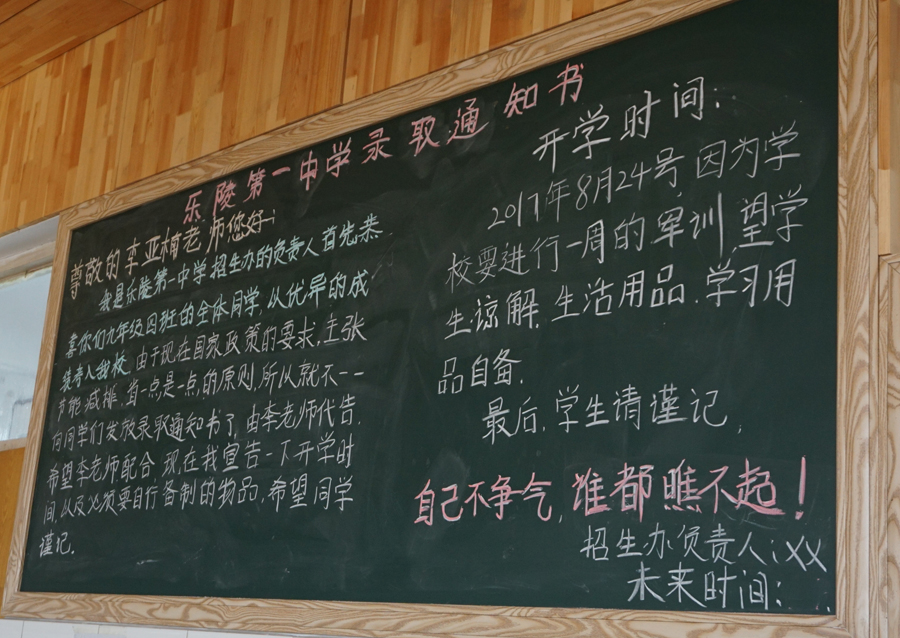 乐陵第一中学录取通知书
尊敬的李亚楠老师您好:
我是乐陵第一中学招生办的负责人首先恭
喜你们九年级四班的全体同学,以优异的成
绩考入我校.由于现在国家政策的要求,主张
节能减排.省一点是一点,的原则,所以就不一一
向同学们发放录取通知书了,由李老师代告.
希望李老师配合.现在我宣告一下开学时
间,以及必须要自行备制的物品,希望同学
谨记.
开学时间:
2017年8月24号因为学
校要进行一周的军训,望学
生谅解.生活用品.学习用
品自备.
最后,学生请谨记,
自己不争气,谁都瞧不起!
招生办负责人:XX
未来时间: